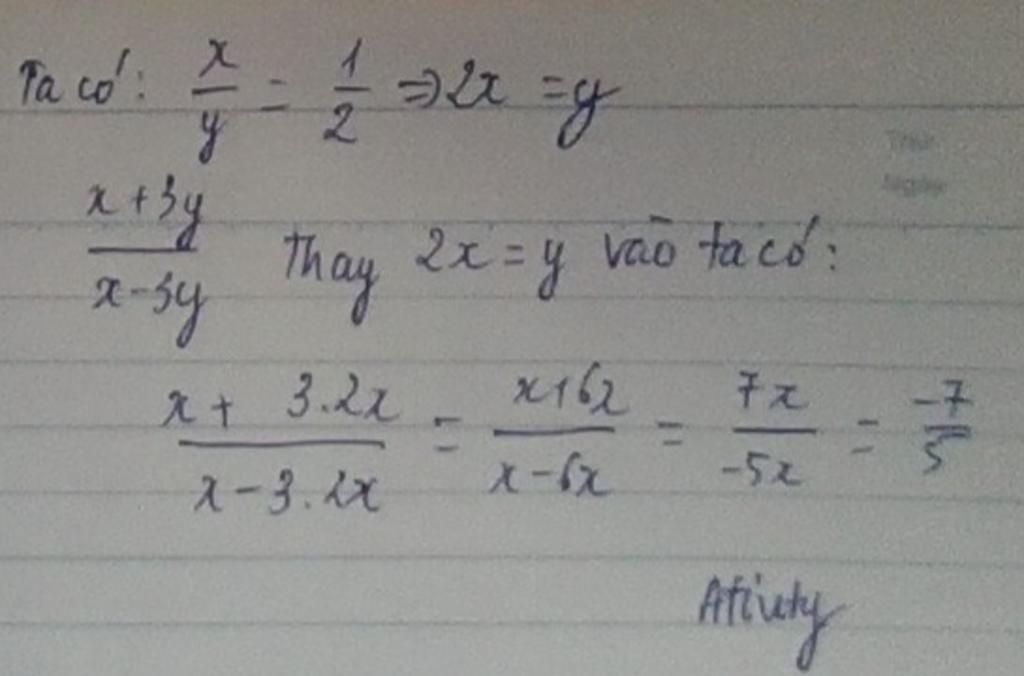 Ta có: x/y = 1/2 => 2x = y
(x+3y)/(x-3y) Thay 2x = y vào ta có:
(x + 3.2x)/(x - 3.2x) = (x+6x)/(x-6x) = 7x/-5x = -7/5